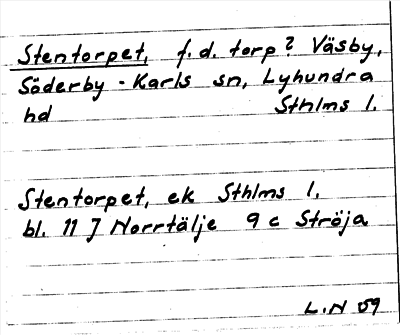 Stentorpet, f.d. torp? Väsby,
Söderby - Karls sn, Lyhundra
hd Sthlms l.
Stentorpet, ek Sthlms l.
bl. 11 J Norrtälje 9 c Ströja
L.N 59